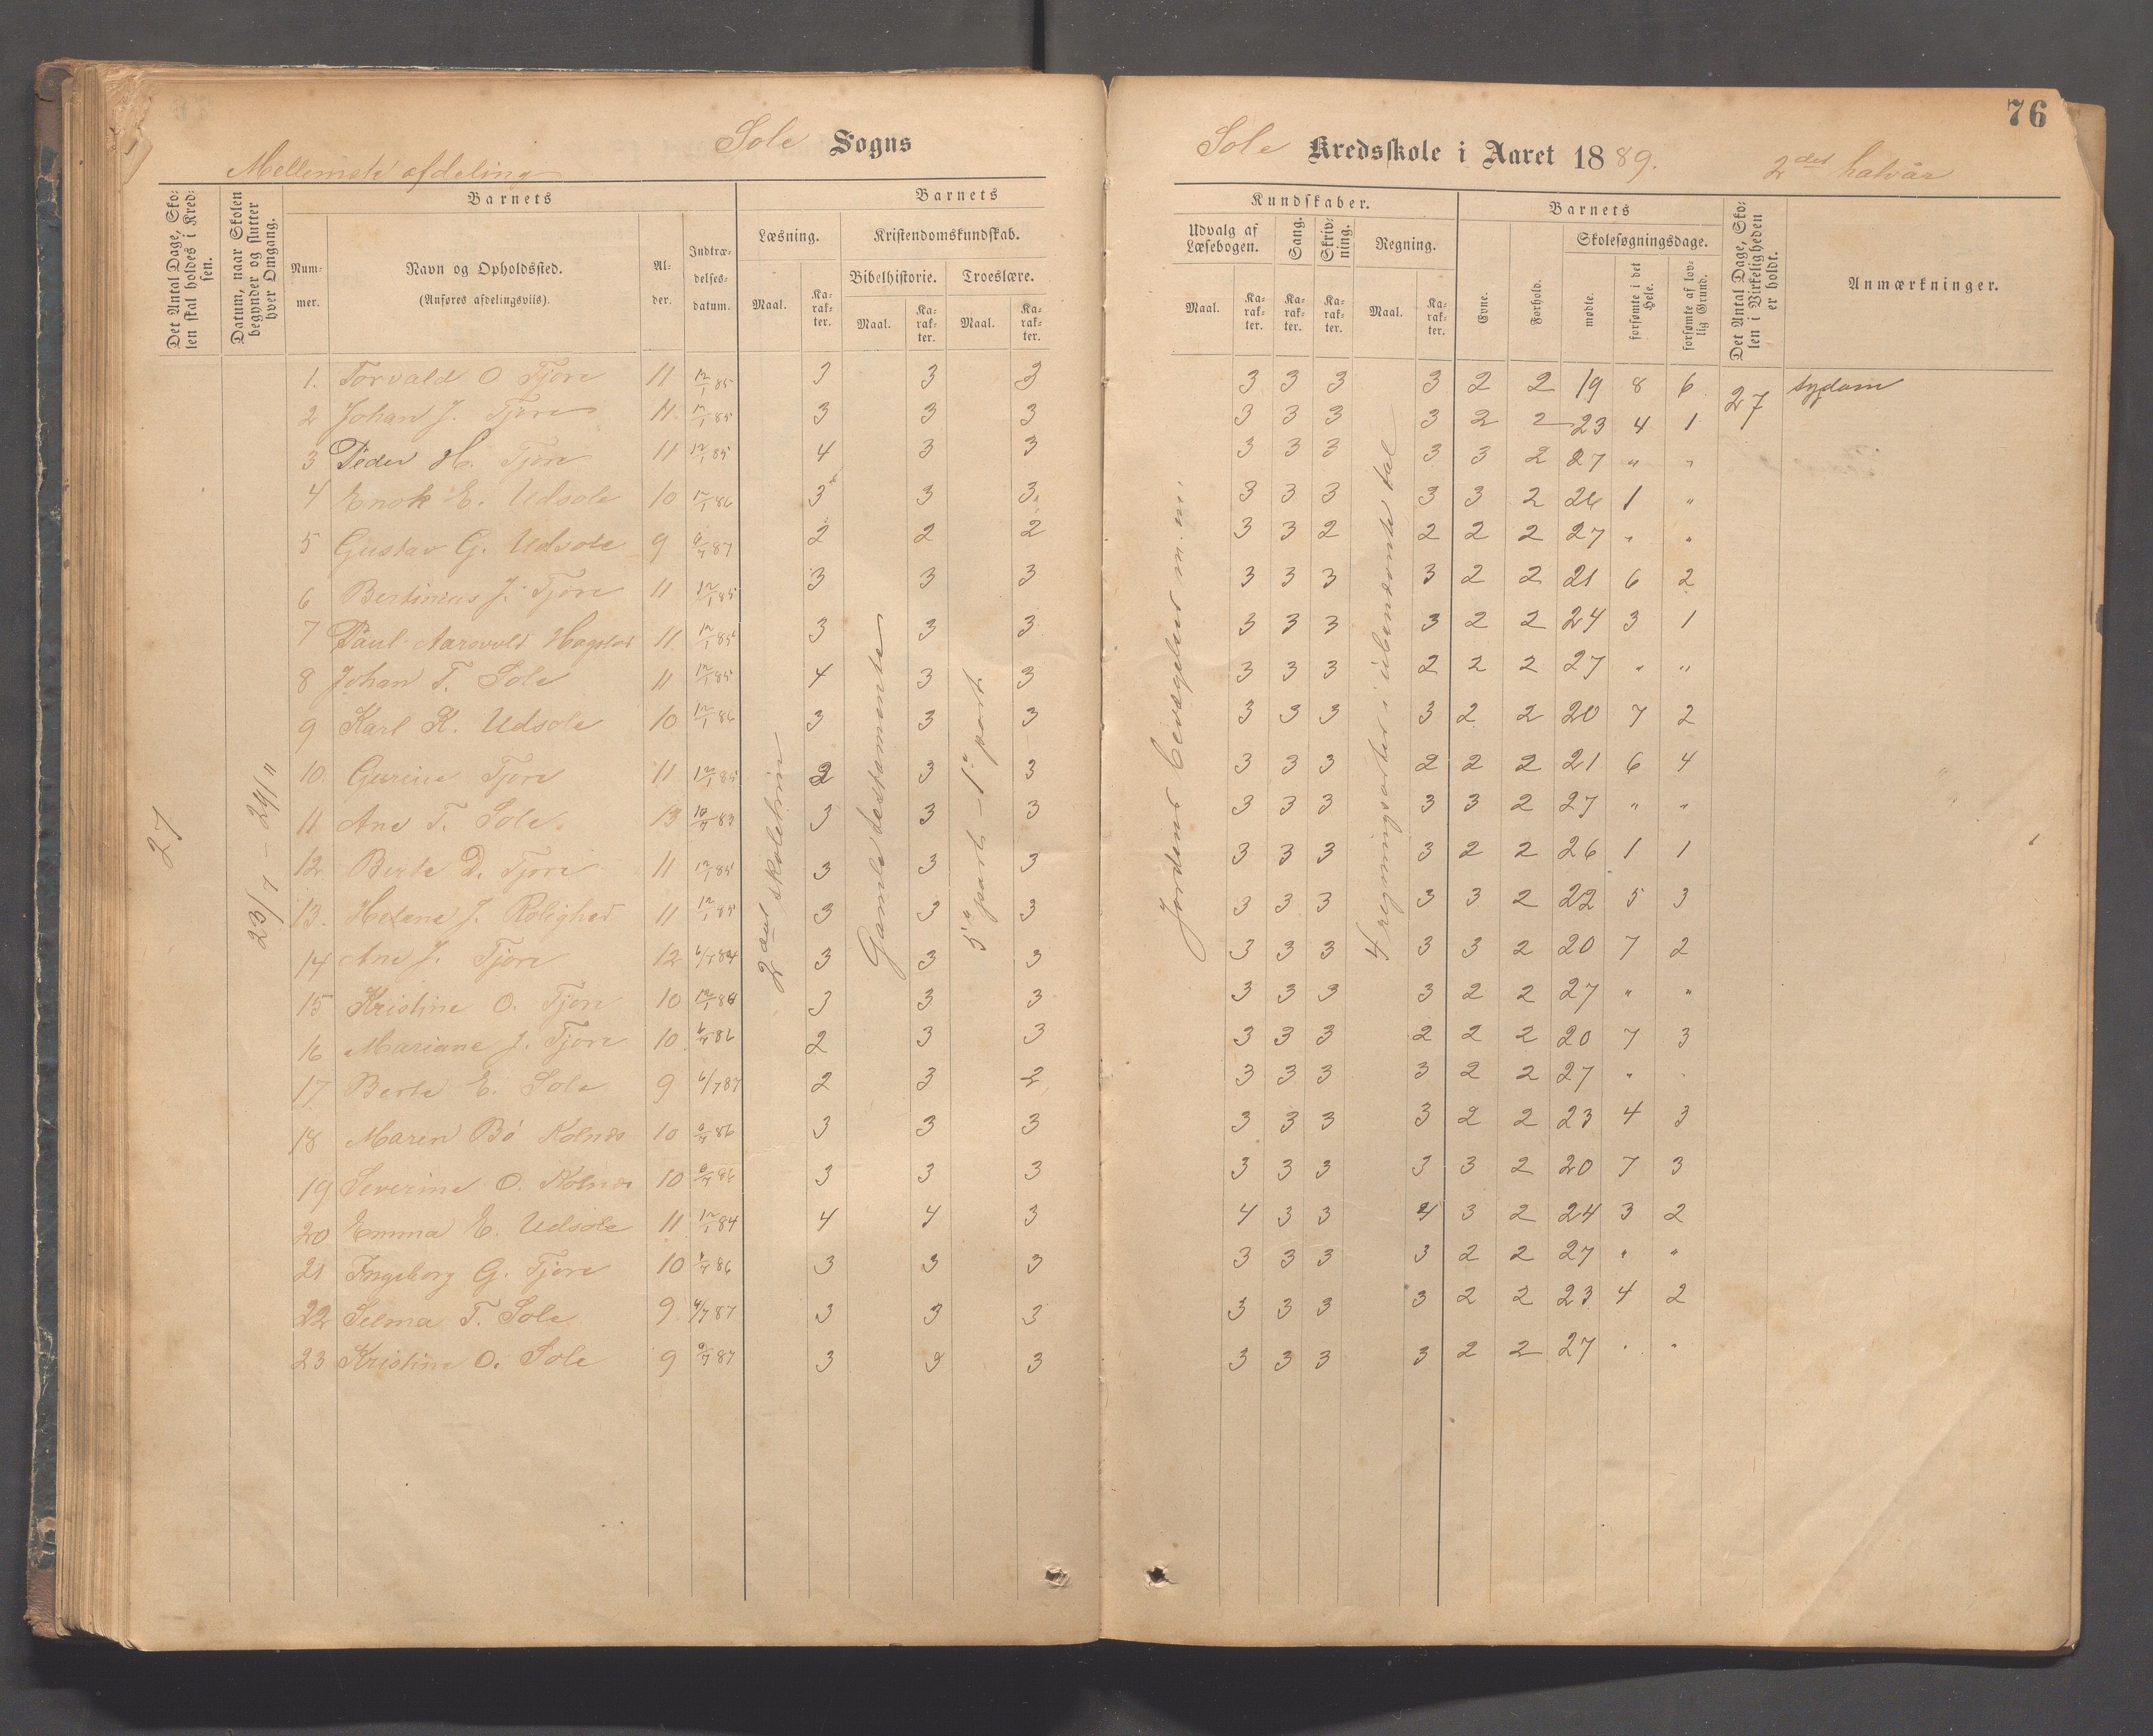 76
Sole Sogns
Mellemste afdeling
Sole Kredsskole i Aaret 1889. 2det halvår
Det Antal Dage, Sko-
len skal holdes i Kred-
sen.
Datum, naar Skolen
begynder og slutter
hver Omgang.
Barnets
Num-
mer.
Navn og Opholdssted.
(Anføres afdelingsviis).
Al-
der.
Indtræ-
delses-
datum.
Barnets
Læsning.
Maal.
Ka-
rak-
ter.
Kristendomskundskab.
Bibelhistorie.
Maal.
Ka-
rak-
ter.
Troeslære.
Maal.
Ka-
rak-
ter.
Kundskaber.
Udvalg af
Læsebogen.
Maal.
Ka-
rak-
ter.
Sang.
Ka-
rak-
ter.
Skriv-
ning.
Ka-
rak-
ter.
Regning.
Maal.
Ka-
rak-
ter.
Barnets
Evne.
Forhold.
Skolesøgningsdage.
mødte.
forsømte i det
Hele.
forsømte af lov-
lig Grund.
Det Antal Dage, Sko-
len i Virkeligheden
er holdt.
Anmærkninger.
27
23/7 - 29/11
2det skoletrin
Gamle testamente
5te part - 1ste part
Jordens bevægelser m. m.
4 regningsarter i ubenævnte tal
1. Torvald O Tjore 11 12/1 85 3 3 3 3 3 3 3 2 2 19 8 6 27 sygdom
2 Johan J. Tjore 11 12/1 85 3 3 3 3 3 3 3 2 2 23 4 1
3 Peder H. Tjore 11 12/1 85 4 3 3 3 3 3 3 3 2 27 " "
4 Enok E. Udsole 10 12/1 86 3 3 3 3 3 3 3 3 2 26 1 "
5 Gustav G. Udsole 9 6/7 87 2 2 2 3 3 2 2 2 2 27 " "
6 Bertinius J. Tjore 11 12/1 85 3 3 3 3 3 3 3 2 2 21 6 2
7 Paul Aarsvold 11 12/1 85 3 3 3 3 3 3 3 2 2 24 3 1
8 Johan T. Sole 11 12/1 85 4 3 3 3 3 3 2 2 2 27 " "
9 Karl K. Udsole 10 12/1 86 3 3 3 3 3 3 3 2 2 20 7 2
10. Gurine Tjore 11 12/1 85 2 3 3 3 3 3 2 2 2 21 6 4
11 Ane T. Sole 13 3 3 3 3 3 3 3 3 2 27 " "
12. Berte D. Tjore 11 12/1 85 3 3 3 3 3 3 3 2 2 26 1 1
13. Helene J. Rolighed 11 12/1 85 3 3 3 3 3 3 3 3 2 22 5 3
14 Ane J. Tjore 12 6/7 84 3 3 3 3 3 3 3 3 2 20 7 2
15 Kristine O. Tjore 10 12/1 86 3 3 3 3 3 3 3 2 2 27 " "
16 Mariane J. Tjore 10 6/7 86 2 3 3 3 3 3 2 2 2 20 7 3
17 Berte E. Sole 9 6/7 87 2 3 2 3 3 3 3 2 2 27 " "
18 Maren Bø Kolnes 10 6/7 86 3 3 3 3 3 3 3 2 2 23 4 3
19 Severine O. Kolnes 10 6/7 86 3 3 3 3 3 3 3 3 2 20 7 3
20 Emma E. Udsole 11 12/1 84 4 4 3 4 3 3 4 3 2 24 3 2
21 Ingeborg G. Tjore 10 6/7 86 3 3 3 3 3 3 3 2 2 27 " "
22 Selma T. Sole 9 6/7 87 3 3 3 3 3 3 3 2 2 23 4 2
23 Kristine O. Sole 9 6/7 87 3 3 3 3 3 3 3 2 2 27 " "